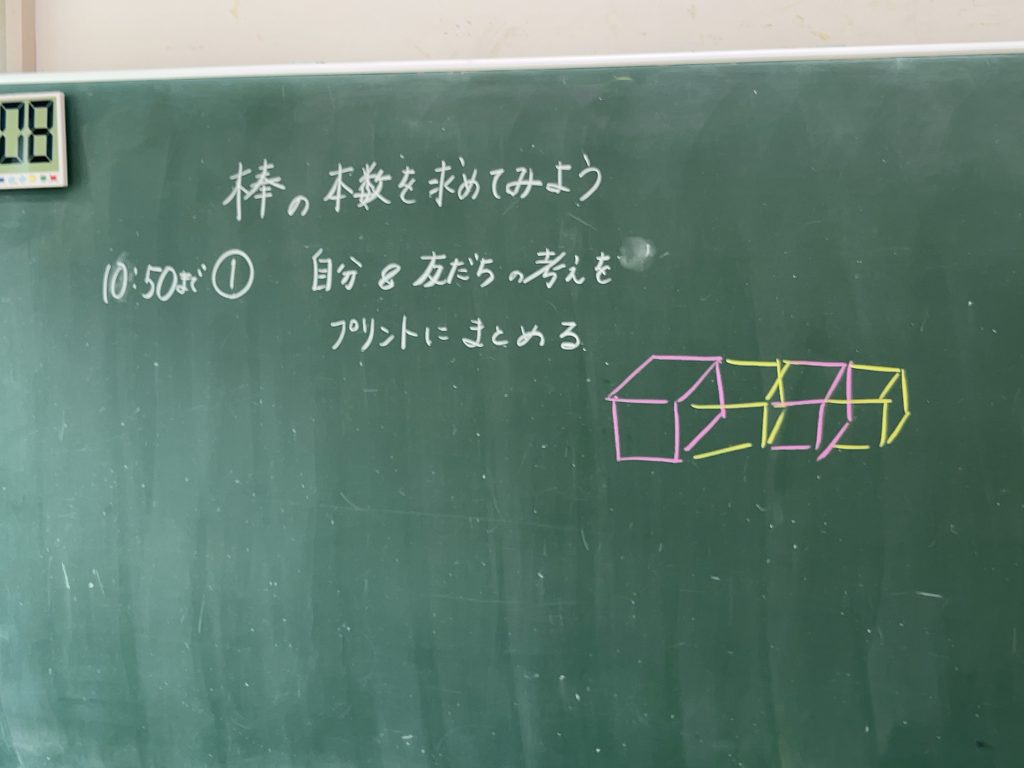 08
棒の本数を求めてみよう
10:50まで ① 自分 & 友だちの考えを
プリントにまとめる